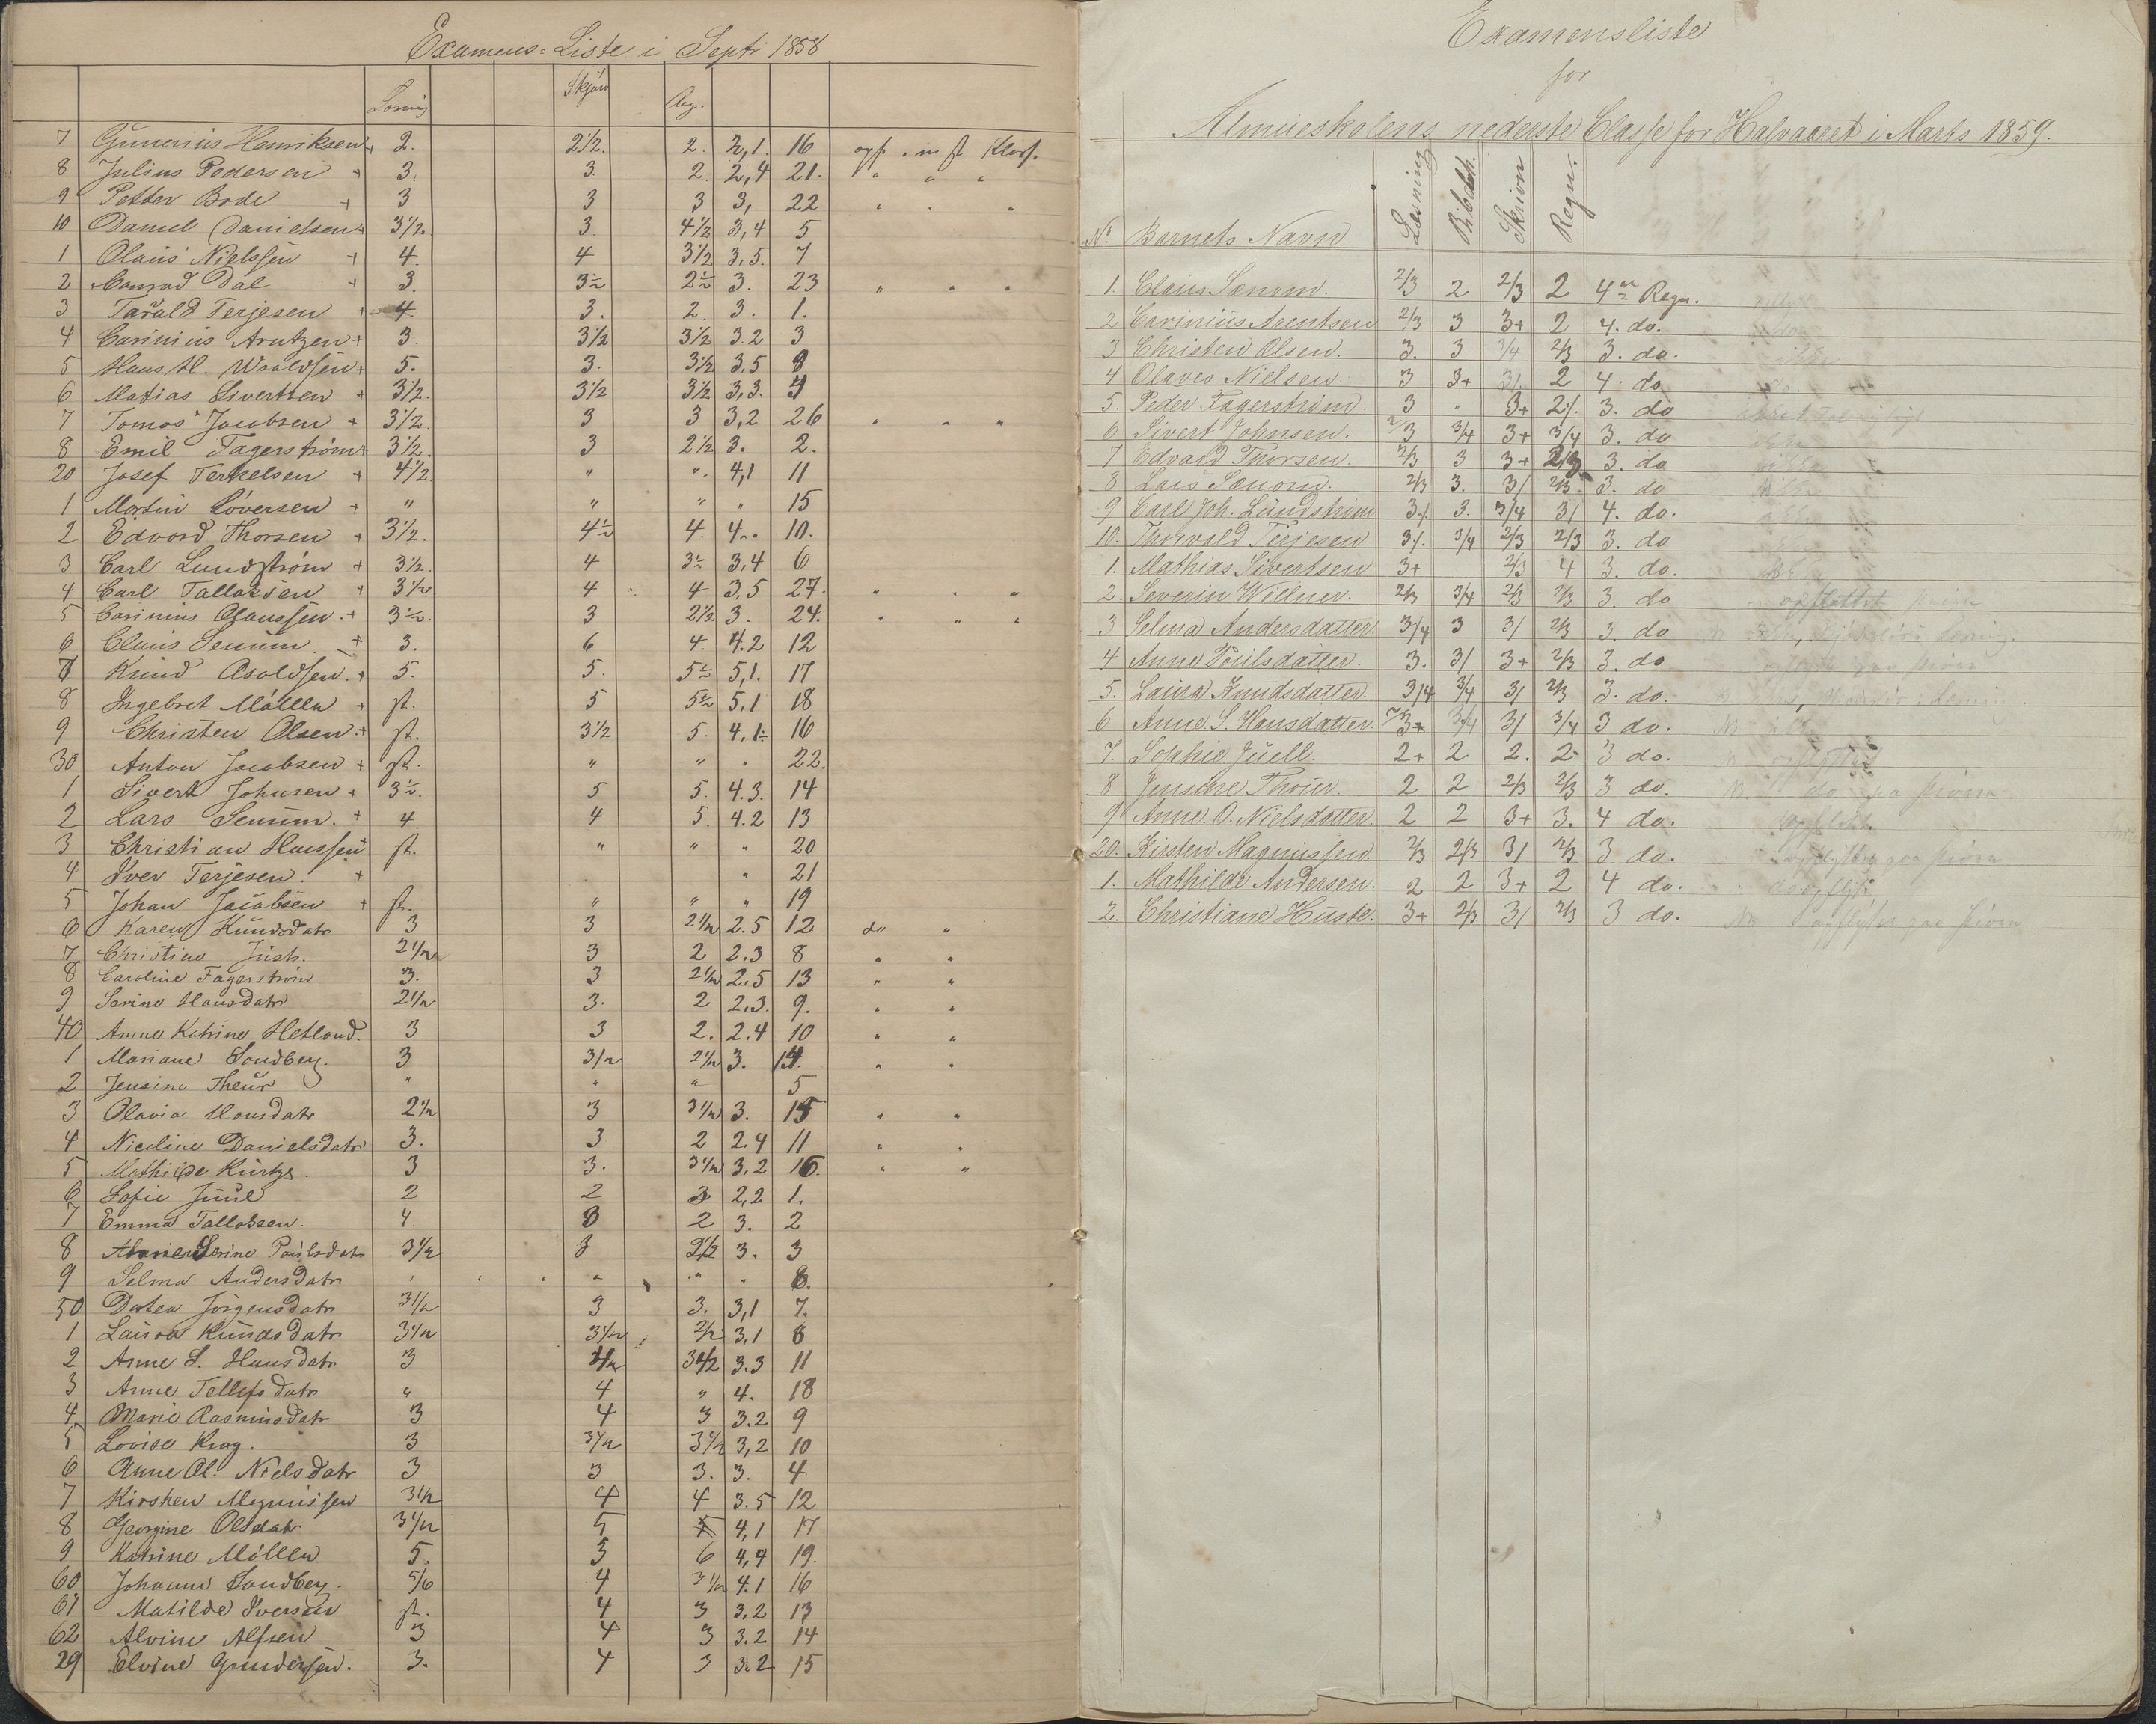 Examens-Liste i Septr 1858
Læsning Skjøn Reg.
7 Gunerius Henriksen + 2. 2½. 2. 2,1. 16 opf. in ft Klass.
8 Julius Pedersen + 3. 3. 2. 2,4 21. " " "
9 Petter Bode + 3 3 3 3, 22 " . "
10 Daniel Danielsen + 3½ 3. 4½ 3,4 5
1 Olaus Nielssen + 4. 4 3½ 3,5. 7
2 Conrad Dal + 3. 3½ 2½ 3. 23 " " "
3 Tarald Terjesen + 4. 3. 2. 3. 1.
4 Carinius Arntzen + 3. 3½ 3½ 3.2 3
5 Hans H. + 5. 3. 3½ 3,5
6 Matias Sivertsen + 3½. 3½ 3½ 3,3.
7 Tomas Jacobsen + 3½ 3 3 3,2 26 " " "
8 Emil Fagerstrøm + 3½. 3 2½ 3. 2.
20 Josef Terkelsen + 4½. " ". 4,1 11
1 Martin + " " " " 15
2 Edvard Thorsen + 3½. 4½ 4. 4.. 10.
3 Carl Lundstrøm + 3½. 4 3½ 3,4 6
4 Carl Tallaksen + 3½ 4 4 3,5 27. " . "
5 Carinius Olaussen. + 3½. 3 2½ 3. 24. " " "
6 Claus Senum + 3. 6 4. 4.2 12
7 Knud Asoldsen. + 5. 5. 5½ 5,1. 17
8 Ingebret Möller + ft. 5 5½ 5,1 18
9 Christen Olsen + ft. 3½ 5. 4,1. 16
30 Anton Jacobsen + ft. " " " 22.
1 Sivert Johnsen + 3½. 5 5. 4.3. 14
2 Lars Senum. + 4. 4 5. 4.2 13
3 Christian Hanssen + ft. " " " 20
4 Iver Terjesen. + " 21
5 Johan Jacobsen + ft. " " " 19
6 Karen Knudsdatr 3 3 2½ 2.5 12 do "
7 Christine 2½ 3 2 2,3 8 " "
8 Caroline Fagerstrøm 3. 3 2½ 2,5 13 " "
9 Serine Hansdatr 2½ 3. 2 2,3. 9. " "
40 Anne Katrine Hetland. 3 3 2. 2.4 10 " "
1 Mariane Sandberg. 3 3½ 2½ 3. 14. " "
2 Jensine Theur " " " 5
3 Olavia Hansdatr 2½ 3 3½ 3. 15 " "
4 Nicoline Danielsdatr 3. 3 2 2.4 11 " "
5 Mathilde Kurtze. 3 3. 3½ 3,2 16. " "
6 Sofie Juul 2 2 3 2,2 1.
7 Emma Tallaksen. 4. 3 2 3. 2
8 Serine Poulsdatr 3½ 3 2½ 3. 3
9 Selma Andersdatr " " " " " " 6.
50 Dortea Jörgensdatr 3½ 3 3. 3,1 7.
1 Laura Knudsdatr 3½ 3½ 2½ 3,1 8
2 Anne S. Hansdatr 3 3½ 3.3 11
3 Anne Tellefsdatr " 4 " 4. 18
4 Marie Rasmusdatr 3 4 3 3.2 9
5 Lovise Krag. 3 3½ 3½ 3,2 10
6 Anne Ol. Nielsdatr 3 3 3. 3. 4
7 Kirsten Magnussen 3½ 4 4 3.5 12
8 Georgine Olsdatr 3½ 5 5 4,1 17
9 Katrine Möller 5. 5 6 4,4 19.
60 Johanne Sandberg. 5/6 4 3½ 4.1 16
61 Matilde Iversen ft. 4 3 3,2 13
62 Alvine Alfsen 3 4 3 3.2 14
29 Elvine Gundersen. 3. 4 3 3.2 15
Examensliste
for
Almueskolens nederste Classe for Halvaaret i Marts 1859.
No Barnets Navn Læsning Bibelh. Skrivn Regn.
1. Claus Sænom. 2/3 2 2/3 2 4re Regn.
2 Carinius Arentsen 2/3 3 3+ 2 4. do.
3 Christen Olsen. 3. 3 3/4 2/3 3. do.
4 Olaves Nielsen. 3 3+ 3/ 2 4. do
5. Peder Fagerstrøm. 3 " 3+ 2/. 3. do
6 Sivert Johnsen. 2/3 3/4 3+ 3/4 3. do
7 Edvard Thorsen. 2/3 3 3+ 2/3 3. do
8 Lars Sænom. 2/3 3. 3/ 2/3. 3. do
9 Carl Joh. Lundstrøm 3/. 3. 3/4 3/ 4. do.
10. Thorvald Terjesen 3/. 3/4 2/3 2/3 3. do
1. Mathias Sivertsen 3+ 2/3 4 3. do.
2. Severin Willner. 2/3 3/4 2/3 2/3 3. do
3 Selma Andersdatter 3/4 3 3/ 2/3 3. do
4 Anne Poulsdatter. 3. 3/ 3+ 2/3 3. do
5. Laura Knudsdatter. 3/4 3/4 3/ 2/3 3. do.
6 Anne. S. Hansdatter 3+ 3/4 3/ 3/4 3 do.
7. Sophie Juell. 2+ 2 2. 2 3 do.
8 Jensine Thour. 2 2 2/3 2/3 3 do.
9 Anne. O. Nielsdatter. 2 2 3+ 3. 4 do.
20. Kirsten Magnussen. 2/3 2/3 3/ 2/3 3 do.
1. Mathilde Andersen. 2 2 3+ 2 4 do.
2. Christiane Huste. 3+ 2/3 3/ 2/3 3 do.